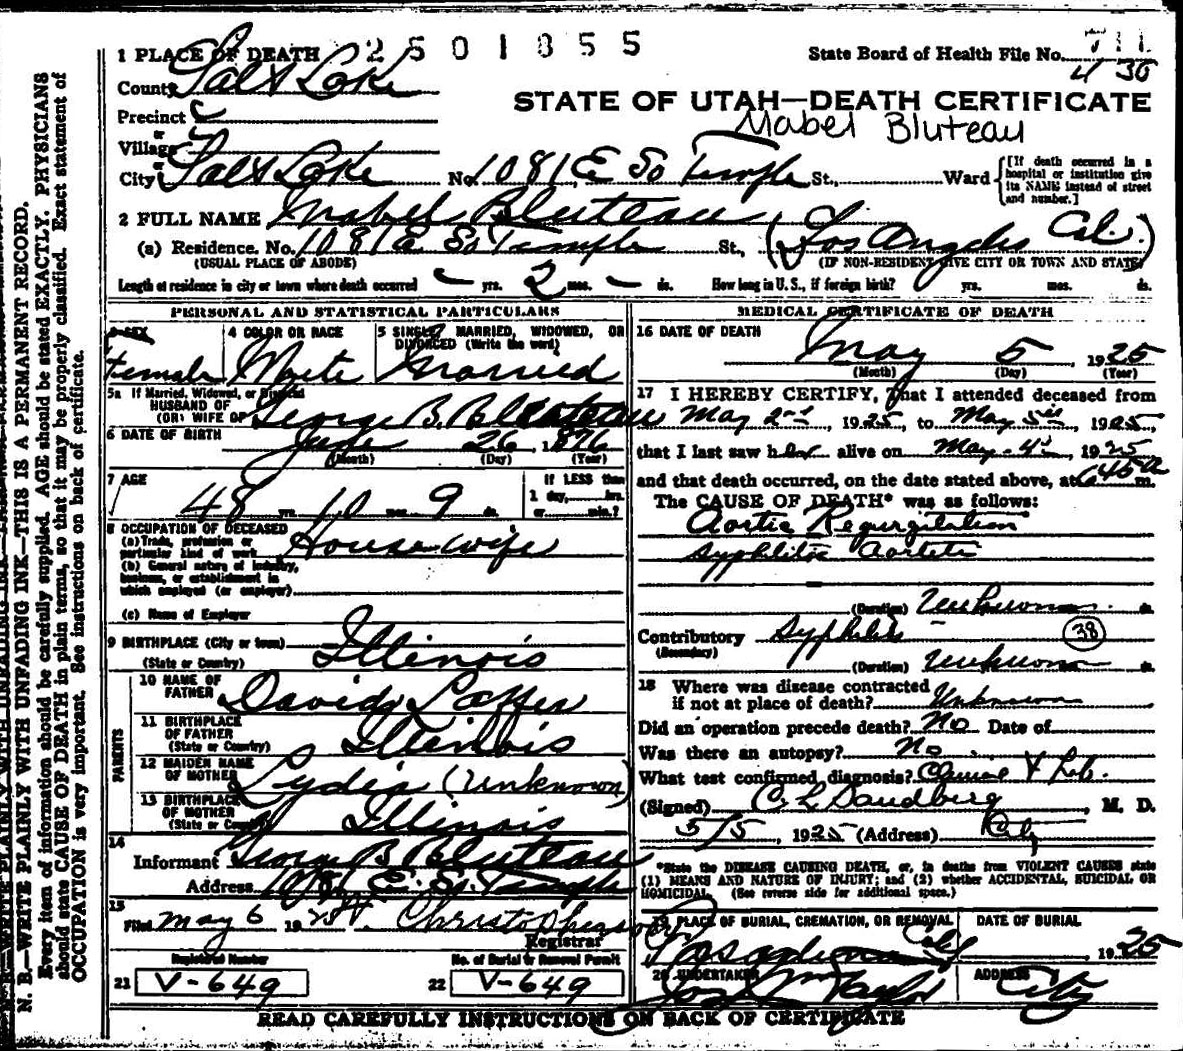 1 PLACE OF DEATH 2501855 State Board of Health File No. 711
County Salt Lake 430
STATE OF UTAH—DEATH CERTIFICATE
Precinct
Mabel Bluteau
or
Village
or
City Salt Lake No. 1081 E So Temple St., Ward [If death occurred in a hospital or institution give its NAME instead of street and number.]
2 FULL NAME Mabel Bluteau
(a) Residence. No. 1081 E. So Temple St., (Los Angeles Cal.)
(USUAL PLACE OF ABODE) (IF NON-RESIDENT GIVE CITY OR TOWN AND STATE)
Length of residence in city or town where death occurred — yrs. 2 mos. — ds. How long in U. S., if foreign birth? yrs. mos. ds.
PERSONAL AND STATISTICAL PARTICULARS
3 SEX 4 COLOR OR RACE 5 SINGLE, MARRIED, WIDOWED, OR DIVORCED (Write the word)
Female White Married
5a If Married, Widowed, or Divorced
HUSBAND OF
(OR) WIFE OF George B. Bluteau
6 DATE OF BIRTH June 26, 1876
(Month) (Day) (Year)
7 AGE If LESS than
48 yrs. 10 mos. 9 ds. 1 day, hrs.
or min.?
8 OCCUPATION OF DECEASED
(a) Trade, profession or
particular kind of work Housewife
(b) General nature of industry,
business, or establishment in
which employed (or employer)
(c) Name of Employer
9 BIRTHPLACE (City or town)
(State or Country) Illinois
PARENTS
10 NAME OF
FATHER David
11 BIRTHPLACE
OF FATHER
(State or Country) Illinois
12 MAIDEN NAME
OF MOTHER Lydia (Unknown)
13 BIRTHPLACE
OF MOTHER
(State or Country) Illinois
14
Informant George B Bluteau
Address 1081 E. So. Temple
15
Filed May 6 1925 Christopherson
Registrar
Registered Number No. of Burial or Removal Permit
21 V-649 22 V-649
MEDICAL CERTIFICATE OF DEATH
16 DATE OF DEATH
May 5, 1925
(Month) (Day) (Year)
17 I HEREBY CERTIFY, that I attended deceased from
May 2nd, 1925, to May 5th, 1925,
that I last saw her alive on May 4th, 1925
and that death occurred, on the date stated above, at 645 a m.
The CAUSE OF DEATH* was as follows:
Aortic Regurgitation
Syphilitic
(Duration) Unknown ds.
Contributory Syphilis 38
(Secondary)
(Duration) Unknown ds.
18 Where was disease contracted
if not at place of death? Unknown
Did an operation precede death? No Date of
Was there an autopsy? No.
What test confirmed diagnosis? Clinical & Lab.
(Signed) C L Sandberg, M. D.
5/5, 1925 (Address) City
*State the DISEASE CAUSING DEATH, or, in deaths from VIOLENT CAUSES state
(1) MEANS AND NATURE OF INJURY; and (2) whether ACCIDENTAL, SUICIDAL OR
HOMICIDAL. (See reverse side for additional space.)
19 PLACE OF BURIAL, CREMATION, OR REMOVAL DATE OF BURIAL
Pasadena Cal 1925
20 UNDERTAKER ADDRESS
Jos. Wm Taylor City
READ CAREFULLY INSTRUCTIONS ON BACK OF CERTIFICATE
N. B.—WRITE PLAINLY WITH UNFADING INK—THIS IS A PERMANENT RECORD.
Every item of information should be carefully supplied. AGE should be stated EXACTLY. PHYSICIANS
should state CAUSE OF DEATH in plain terms, so that it may be properly classified. Exact statement of
OCCUPATION is very important. See instructions on back of certificate.